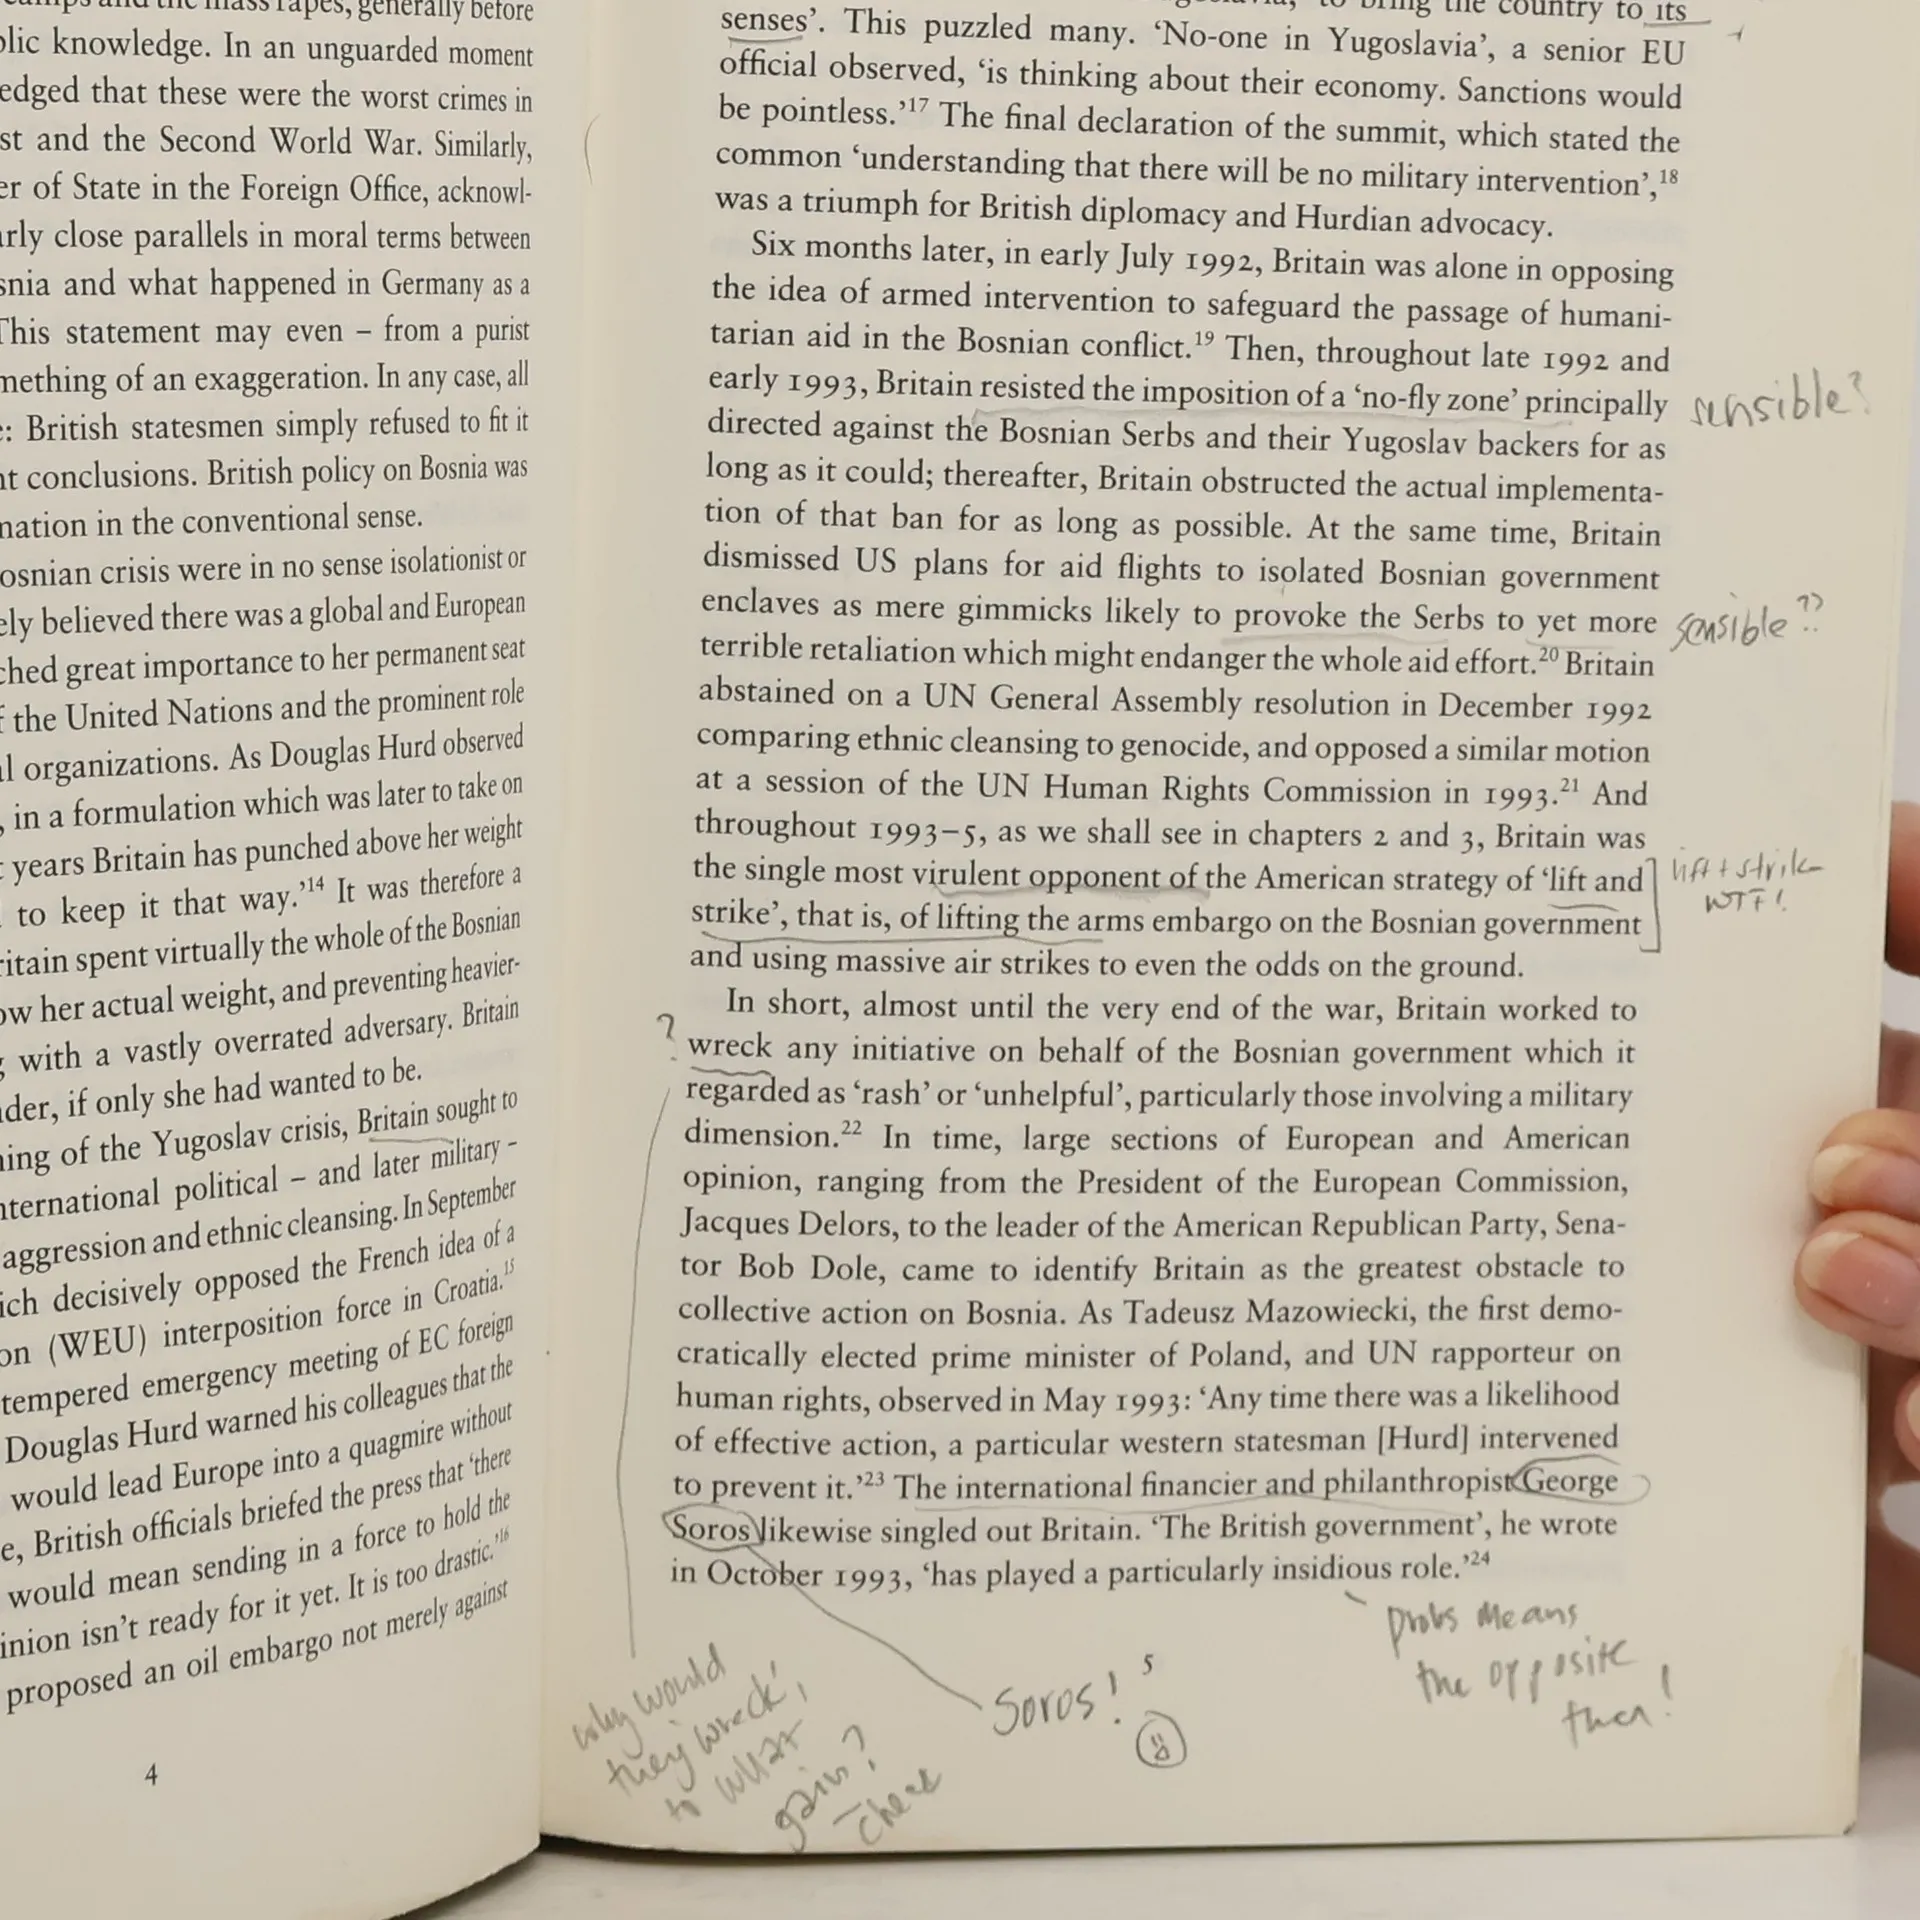 camps and the mass rapes, generally before
blic knowledge. In an unguarded moment
edged that these were the worst crimes in
st and the Second World War. Similarly,
er of State in the Foreign Office, acknowl-
arly close parallels in moral terms between
snia and what happened in Germany as a
This statement may even – from a purist
mething of an exaggeration. In any case, all
e: British statesmen simply refused to fit it
nt conclusions. British policy on Bosnia was
nation in the conventional sense.
osnian crisis were in no sense isolationist or
ely believed there was a global and European
ched great importance to her permanent seat
f the United Nations and the prominent role
al organizations. As Douglas Hurd observed
, in a formulation which was later to take on
t years Britain has punched above her weight
to keep it that way.’14 It was therefore a
ritain spent virtually the whole of the Bosnian
ow her actual weight, and preventing heavier-
g with a vastly overrated adversary. Britain
ader, if only she had wanted to be.
ning of the Yugoslav crisis, Britain sought to
nternational political – and later military –
aggression and ethnic cleansing. In September
ich decisively opposed the French idea of a
on (WEU) interposition force in Croatia.15
tempered emergency meeting of EC foreign
Douglas Hurd warned his colleagues that the
would lead Europe into a quagmire without
e, British officials briefed the press that ‘there
would mean sending in a force to hold the
inion isn’t ready for it yet. It is too drastic.’16
proposed an oil embargo not merely against
4
to bring the country to its
senses’. This puzzled many. ‘No-one in Yugoslavia’, a senior EU
official observed, ‘is thinking about their economy. Sanctions would
be pointless.’17 The final declaration of the summit, which stated the
common ‘understanding that there will be no military intervention’,18
was a triumph for British diplomacy and Hurdian advocacy.
Six months later, in early July 1992, Britain was alone in opposing
the idea of armed intervention to safeguard the passage of humani-
tarian aid in the Bosnian conflict.19 Then, throughout late 1992 and
early 1993, Britain resisted the imposition of a ‘no-fly zone’ principally
sensible?
directed against the Bosnian Serbs and their Yugoslav backers for as
long as it could; thereafter, Britain obstructed the actual implementa-
tion of that ban for as long as possible. At the same time, Britain
dismissed US plans for aid flights to isolated Bosnian government
enclaves as mere gimmicks likely to provoke the Serbs to yet more
sensible??
terrible retaliation which might endanger the whole aid effort.20 Britain
abstained on a UN General Assembly resolution in December 1992
comparing ethnic cleansing to genocide, and opposed a similar motion
at a session of the UN Human Rights Commission in 1993.21 And
throughout 1993–5, as we shall see in chapters 2 and 3, Britain was
the single most virulent opponent of the American strategy of ‘lift and
lift + strike
WTF!
strike’, that is, of lifting the arms embargo on the Bosnian government
and using massive air strikes to even the odds on the ground.
In short, almost until the very end of the war, Britain worked to
?
wreck any initiative on behalf of the Bosnian government which it
regarded as ‘rash’ or ‘unhelpful’, particularly those involving a military
dimension.22 In time, large sections of European and American
opinion, ranging from the President of the European Commission,
Jacques Delors, to the leader of the American Republican Party, Sena-
tor Bob Dole, came to identify Britain as the greatest obstacle to
collective action on Bosnia. As Tadeusz Mazowiecki, the first demo-
cratically elected prime minister of Poland, and UN rapporteur on
human rights, observed in May 1993: ‘Any time there was a likelihood
of effective action, a particular western statesman [Hurd] intervened
to prevent it.’23 The international financier and philanthropist George
Soros likewise singled out Britain. ‘The British government’, he wrote
in October 1993, ‘has played a particularly insidious role.’24
probs means
the opposite
then!
Soros!
why would
they wreck!
to what
gain?
– check
5